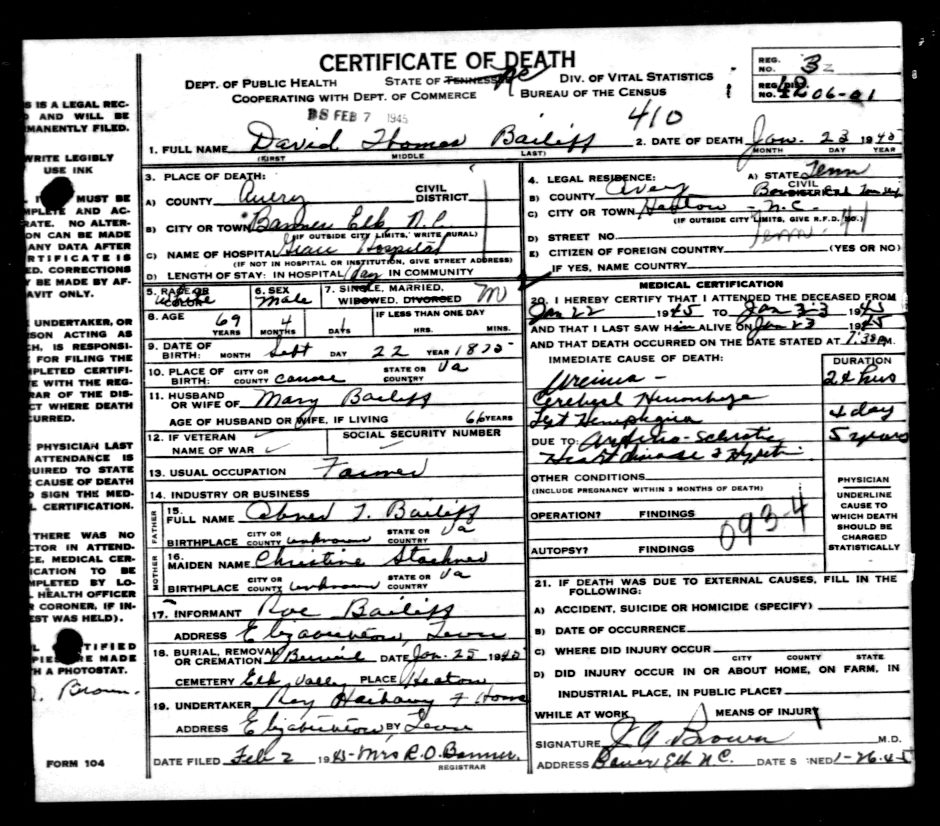 CERTIFICATE OF DEATH
DEPT. OF PUBLIC HEALTH STATE OF TENNESSEE NC DIV. OF VITAL STATISTICS
COOPERATING WITH DEPT. OF COMMERCE BUREAU OF THE CENSUS
REG. NO. 3
REG. DIS. NO. 1206-01
FEB 7 1945
410
1. FULL NAME David Thomas Bailiff 2. DATE OF DEATH Jan. 23 1945
(FIRST) MIDDLE LAST) MONTH DAY YEAR
3. PLACE OF DEATH:
A) COUNTY Avery CIVIL DISTRICT
B) CITY OR TOWN Banner Elk N.C.
(IF OUTSIDE CITY LIMITS, WRITE RURAL)
C) NAME OF HOSPITAL Grace Hospital
(IF NOT IN HOSPITAL OR INSTITUTION, GIVE STREET ADDRESS)
D) LENGTH OF STAY: IN HOSPITAL 1 day IN COMMUNITY
4. LEGAL RESIDENCE: A) STATE Tenn
B) COUNTY Avery CIVIL DISTRICT
C) CITY OR TOWN Heaton - N.C.
(IF OUTSIDE CITY LIMITS, GIVE R.F.D. NO.)
D) STREET NO. Tenn.
E) CITIZEN OF FOREIGN COUNTRY (YES OR NO)
IF YES, NAME COUNTRY
5. RACE OR COLOR 6. SEX Male 7. SINGLE, MARRIED, WIDOWED, DIVORCED M
8. AGE 69 YEARS 4 MONTHS 1 DAYS IF LESS THAN ONE DAY HRS. MINS.
9. DATE OF BIRTH: MONTH Sept DAY 22 YEAR 1875
10. PLACE OF BIRTH: CITY OR COUNTY STATE OR COUNTRY Va
11. HUSBAND OR WIFE OF Mary Bailiff
AGE OF HUSBAND OR WIFE, IF LIVING 66 YEARS
12. IF VETERAN NAME OF WAR SOCIAL SECURITY NUMBER
13. USUAL OCCUPATION Farmer
14. INDUSTRY OR BUSINESS
FATHER
15. FULL NAME Abner T. Bailiff
BIRTHPLACE CITY OR COUNTY unknown STATE OR COUNTRY Va
MOTHER
16. MAIDEN NAME Christine
BIRTHPLACE CITY OR COUNTY unknown STATE OR COUNTRY Va
17. INFORMANT Roe Bailiff
ADDRESS Elizabethton, Tenn
18. BURIAL, REMOVAL OR CREMATION Burial DATE Jan. 25 1945
CEMETERY Elk Valley PLACE Heaton
19. UNDERTAKER Roy Hathaway F Home
ADDRESS Elizabethton BY Tenn
DATE FILED Feb 2 1945 Mrs R.O. Banner.
REGISTRAR
MEDICAL CERTIFICATION
20. I HEREBY CERTIFY THAT I ATTENDED THE DECEASED FROM
Jan 22 1945 TO Jan 23 1945
AND THAT I LAST SAW Him ALIVE ON Jan 23 1945
AND THAT DEATH OCCURRED ON THE DATE STATED AT 7:30 P.M.
IMMEDIATE CAUSE OF DEATH: DURATION
Uremia - 24 hrs
Cerebral Hemorrhage
Left Hemiplegia 4 day
DUE TO: Arterio-Sclerotic 5 years
Heart disease &
OTHER CONDITIONS
(INCLUDE PREGNANCY WITHIN 3 MONTHS OF DEATH)
OPERATION? FINDINGS
AUTOPSY? FINDINGS
093-4
PHYSICIAN
UNDERLINE
CAUSE TO
WHICH DEATH
SHOULD BE
CHARGED
STATISTICALLY
21. IF DEATH WAS DUE TO EXTERNAL CAUSES, FILL IN THE
FOLLOWING:
A) ACCIDENT, SUICIDE OR HOMICIDE (SPECIFY)
B) DATE OF OCCURRENCE
C) WHERE DID INJURY OCCUR
CITY COUNTY STATE
D) DID INJURY OCCUR IN OR ABOUT HOME, ON FARM, IN
INDUSTRIAL PLACE, IN PUBLIC PLACE?
WHILE AT WORK MEANS OF INJURY
SIGNATURE Brown M.D.
ADDRESS Banner Elk N.C. DATE SIGNED 1-26-45
S IS A LEGAL REC-
AND WILL BE
MANENTLY FILED.
WRITE LEGIBLY
USE INK
MUST BE
MPLETE AND AC-
RATE. NO ALTER-
ON CAN BE MADE
ANY DATA AFTER
RTIFICATE IS
ED. CORRECTIONS
Y BE MADE BY AF-
AVIT ONLY.
UNDERTAKER, OR
SON ACTING AS
CH, IS RESPONSI-
FOR FILING THE
PLETED CERTIFI-
E WITH THE REG-
RAR OF THE DIS-
CT WHERE DEATH
URRED.
PHYSICIAN LAST
ATTENDANCE IS
UIRED TO STATE
CAUSE OF DEATH
SIGN THE MED-
L CERTIFICATION.
THERE WAS NO
CTOR IN ATTEND-
CE, MEDICAL CER-
ICATION TO BE
MPLETED BY LO-
HEALTH OFFICER
CORONER, IF IN-
EST WAS HELD).
TIFIED
PIES ARE MADE
TH A PHOTOSTAT.
Brown.
FORM 104